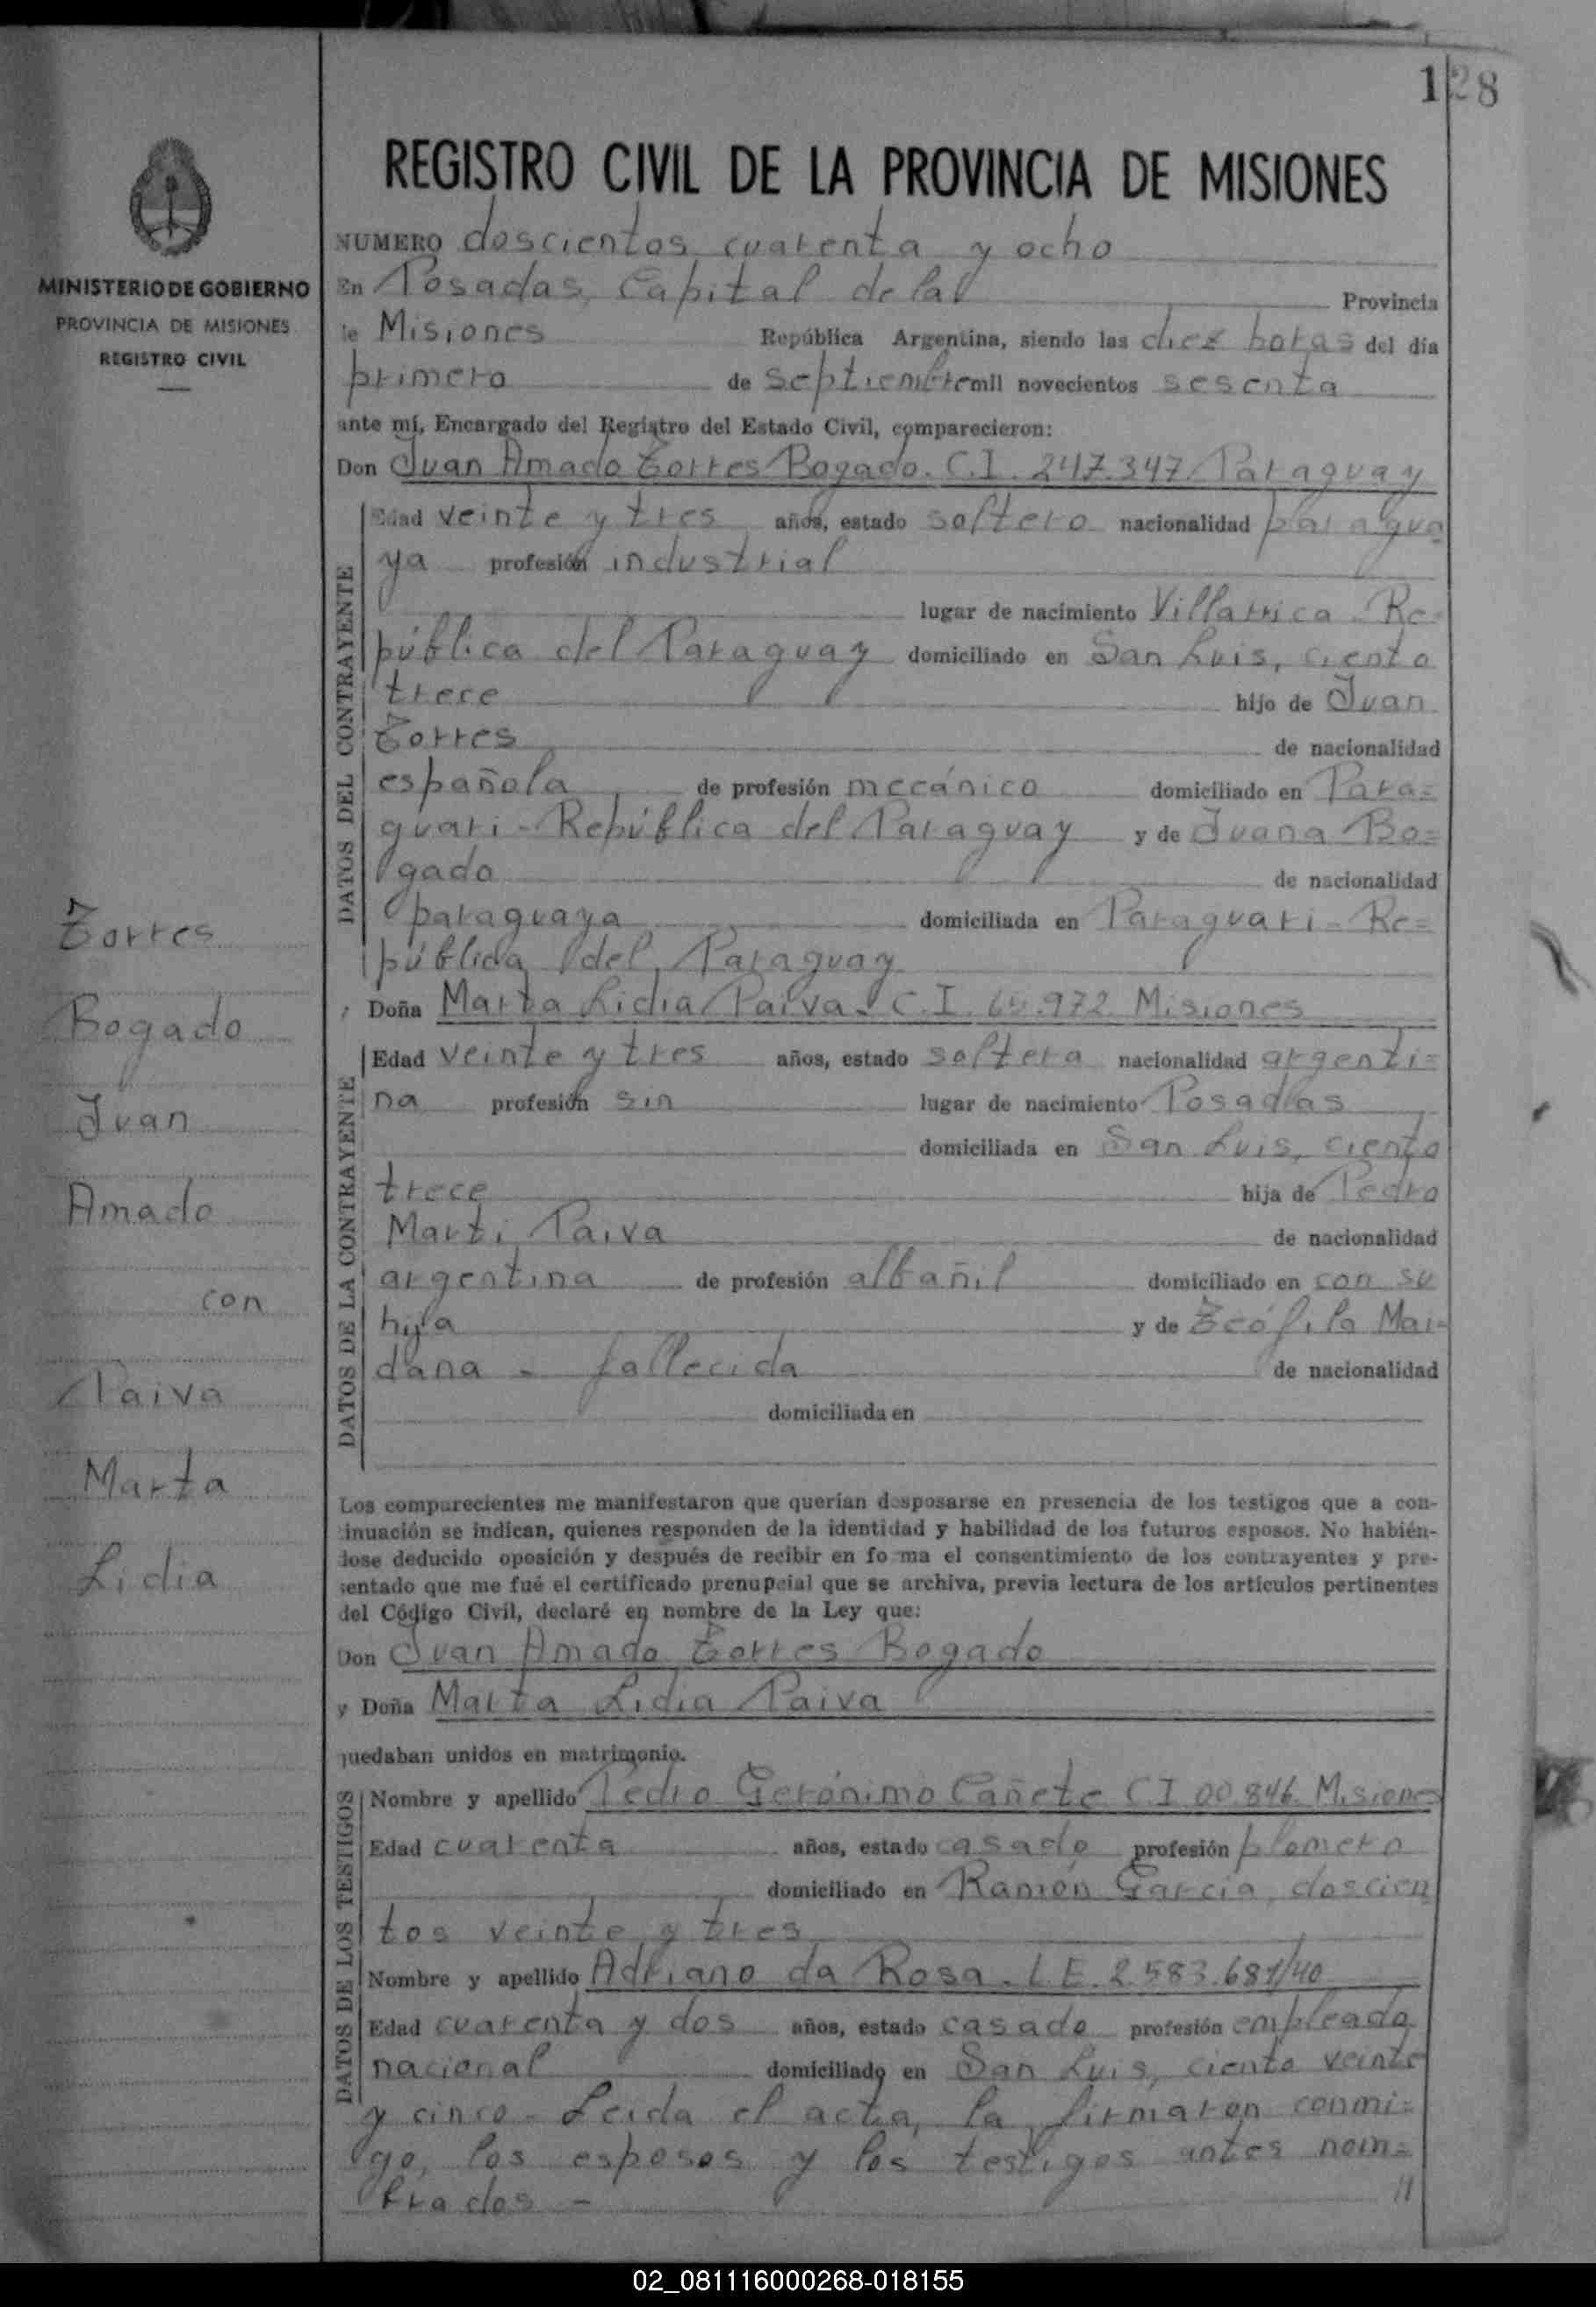 128
REGISTRO CIVIL DE LA PROVINCIA DE MISIONES
MINISTERIO DE GOBIERNO
PROVINCIA DE MISIONES
REGISTRO CIVIL
NUMERO doscientos cuarenta y ocho
En Posadas, Capital de la Provincia
de Misiones República Argentina, siendo las diez horas del día
primero de septiembre mil novecientos sesenta
ante mí, Encargado del Registro del Estado Civil, comparecieron:
Don Juan Amado Torres Bogado. C.I. 247.347 Paraguay
DATOS DEL CONTRAYENTE
Edad veinte y tres años, estado soltero nacionalidad paragua
ya profesión industrial
lugar de nacimiento Villarrica - Re-
pública del Paraguay domiciliado en San Luis, ciento
trece hijo de Juan
Torres de nacionalidad
española de profesión mecánico domiciliado en Para=
guari - República del Paraguay y de Juana Bo=
gado de nacionalidad
paraguaya domiciliada en Paraguari - Re=
pública del Paraguay
Doña Marta Lidia Paiva. C.I. .972 Misiones
DATOS DE LA CONTRAYENTE
Edad veinte y tres años, estado soltera nacionalidad argenti=
na profesión sin lugar de nacimiento Posadas
domiciliada en San Luis, ciento
trece hija de Pedro
Marti Paiva de nacionalidad
argentina de profesión albañil domiciliado en con su
hija y de Teófila Mai=
dana - fallecida de nacionalidad
domiciliada en
Los comparecientes me manifestaron que querían desposarse en presencia de los testigos que a con-
tinuación se indican, quienes responden de la identidad y habilidad de los futuros esposos. No habién-
dose deducido oposición y después de recibir en forma el consentimiento de los contrayentes y pre-
sentado que me fué el certificado prenupcial que se archiva, previa lectura de los artículos pertinentes
del Código Civil, declaré en nombre de la Ley que:
Don Juan Amado Torres Bogado
y Doña Marta Lidia Paiva
quedaban unidos en matrimonio.
DATOS DE LOS TESTIGOS
Nombre y apellido Pedro Gerónimo Cañete C.I 00.846 Misiones
Edad cuarenta años, estado casado profesión plomero
domiciliado en Ramón García, doscien
tos veinte y tres
Nombre y apellido Adriano da Rosa. L.E. 2.583.681/40
Edad cuarenta y dos años, estado casado profesión empleado
nacional domiciliado en San Luis, ciento veinte
y cinco - Leida el acta, la firmaron conmi=
go, los esposos y los testigos antes nom=
brados - //
Torres
Bogado
Juan
Amado
con
Paiva
Marta
Lidia
02_081116000268-018155